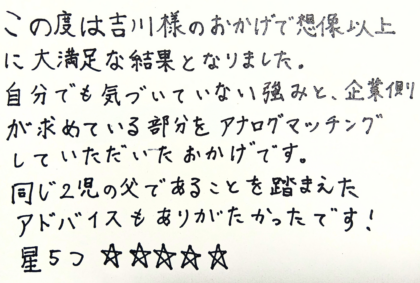 この度は吉川様のおかげで想像以上
に大満足な結果となりました。
自分でも気づいていない強みと、企業側
が求めている部分をアナログマッチング
していただいたおかげです。
同じ2児の父であることを踏まえた
アドバイスもありがたかったです!
星5つ ☆☆☆☆☆